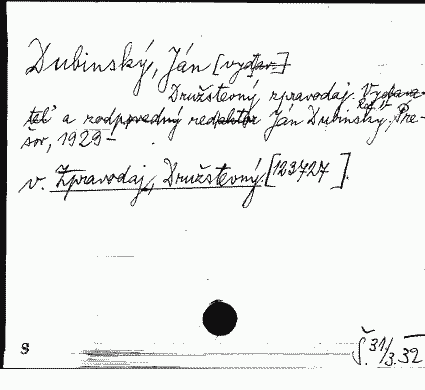 Dubinský, Ján [vydav.]
Družstevný zpravodaj. Vydava-
teľ a zodpovedný redaktor Ján Dubinský, Pre-
šov, 1929-
v. Zpravodaj, Družstevný. [123727].
S Š. 31/3.32